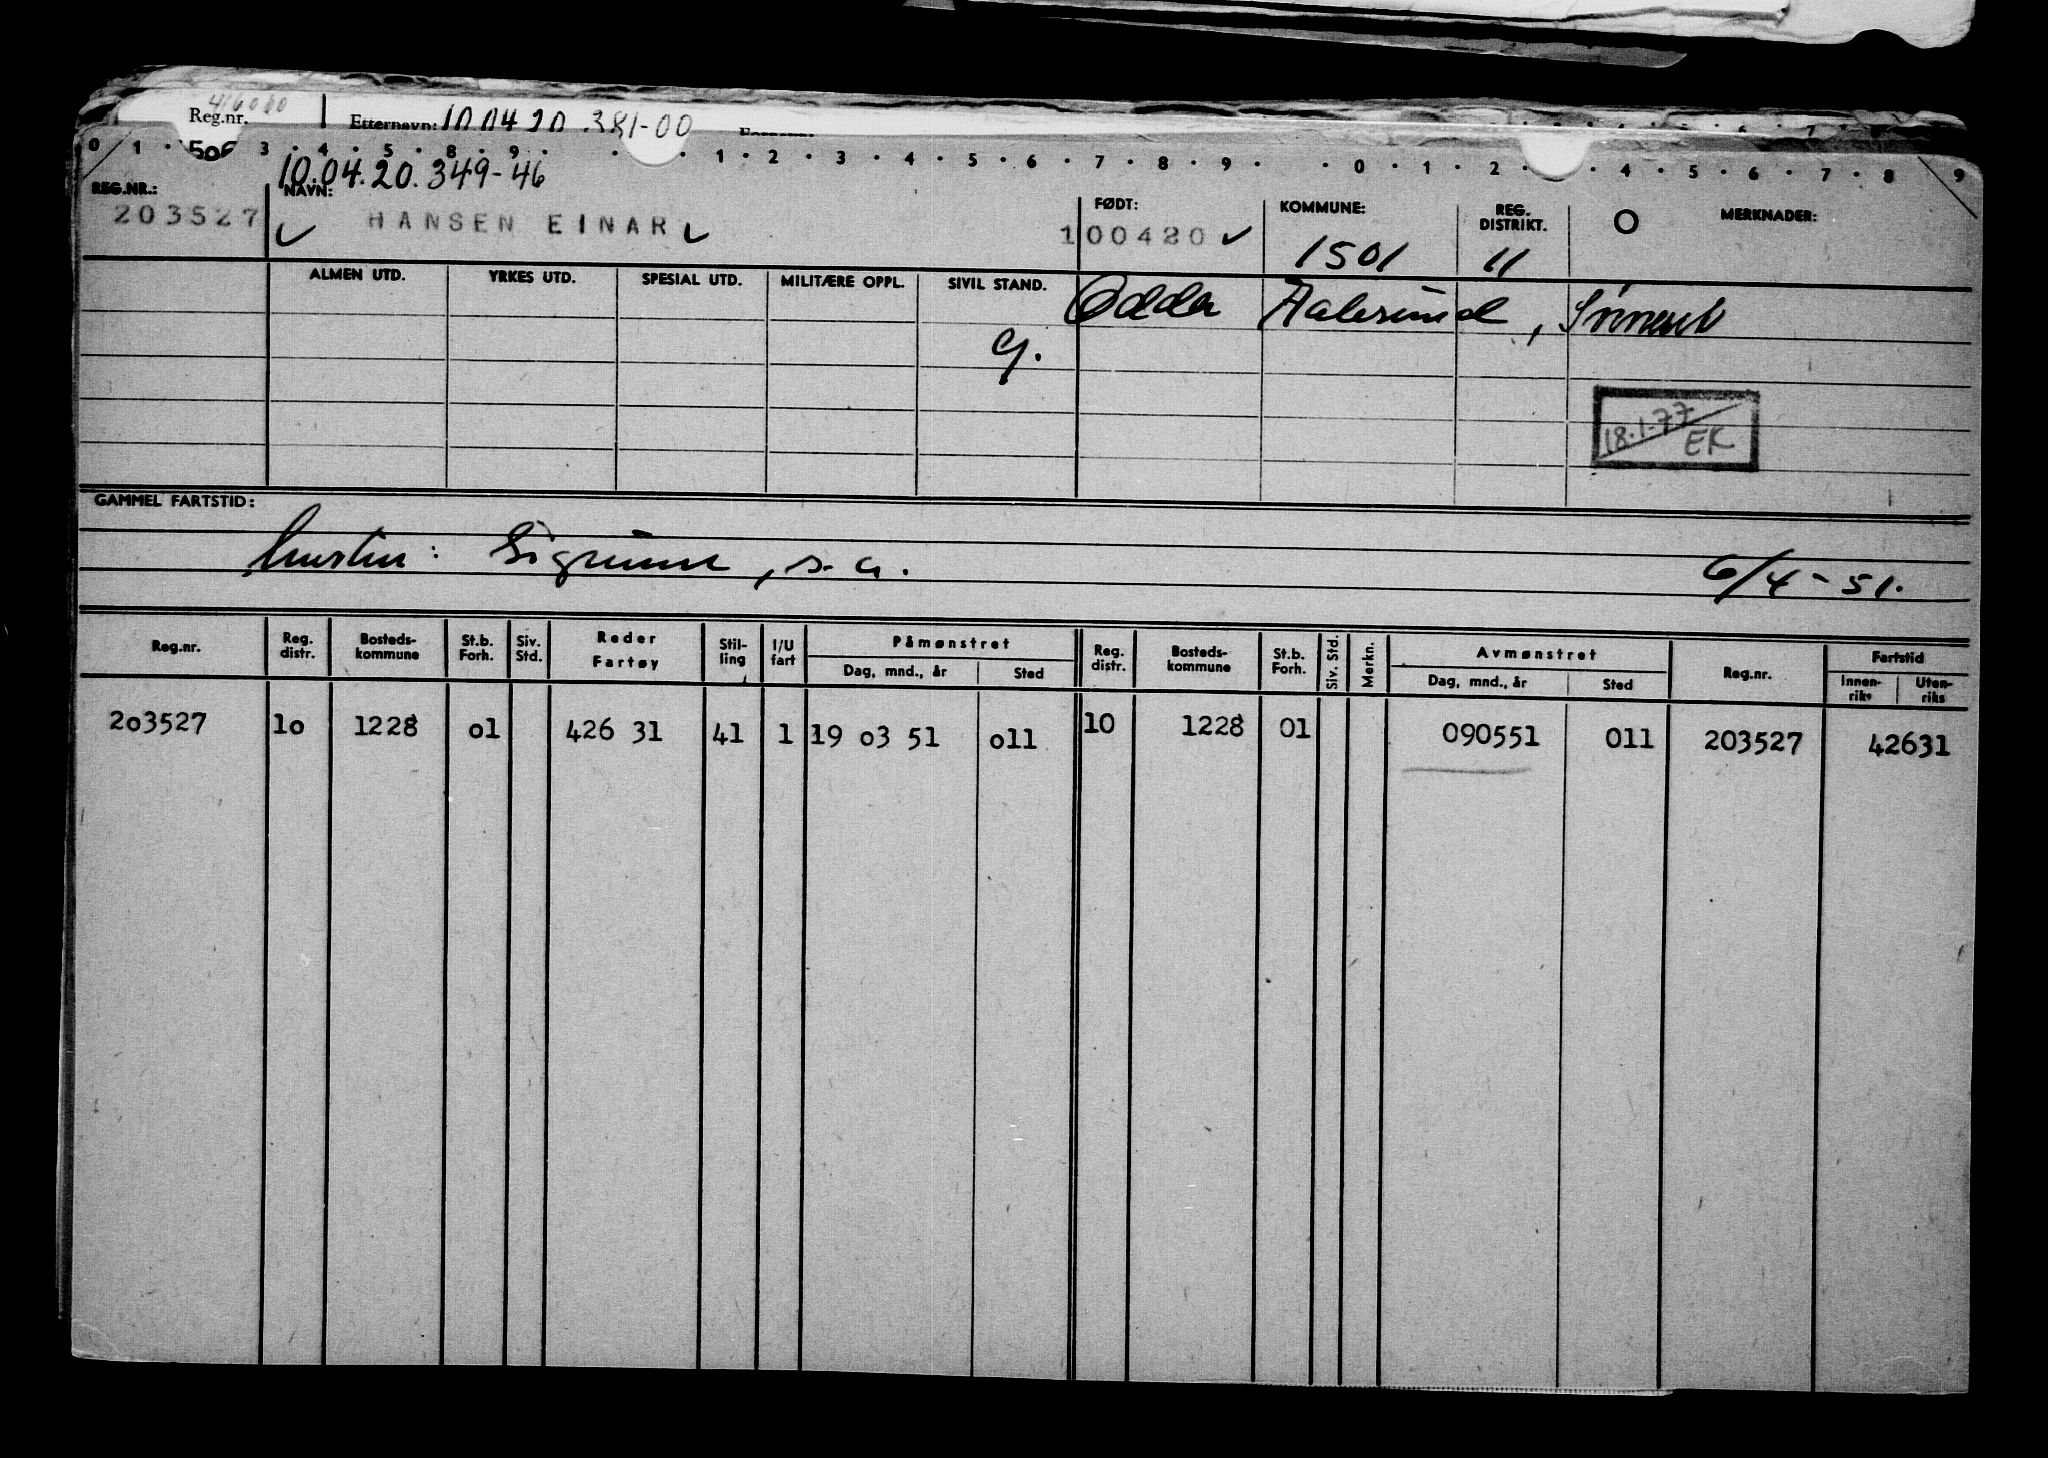 416060
Reg.nr. Etternavn: 10 04 20 .381-00
0 1 . 506 3 . 4 . 5 . 8 . 9 . . . 1 . 2 . 3 . 4 . 5 . 6 . 7 . 8 . 9 . . 0 . 1 . 2 . . 4 . 5 . 6 . 7 . 8 9
10.04.20.349-46
REG.NR.: NAVN: FØDT: KOMMUNE: REG. DISTRIKT. O MERKNADER:
203527 HANSEN EINAR 100420 1501 11
ALMEN UTD. YRKES UTD. SPESIAL UTD. MILITÆRE OPPL. SIVIL STAND. Odda Aalesund,
g.
18.1.77
EK
GAMMEL FARTSTID:
hustru: Sigrunn, s.a. 6/4-51.
Reg.nr. Reg. distr. Bosteds-kommune St.b. Forh. Siv. Std. Reder Fartøy Stil-ling I/U fart Påmønstret Dag, mnd., år Sted Reg. distr. Bosteds-kommune St.b. Forh. Siv. Std. Merkn. Avmønstret Dag, mnd., år Sted Reg.nr. Fartstid Innen-riks Uten-riks
203527 10 1228 01 426 31 41 1 19 03 51 011 10 1228 01 090551 011 203527 42631